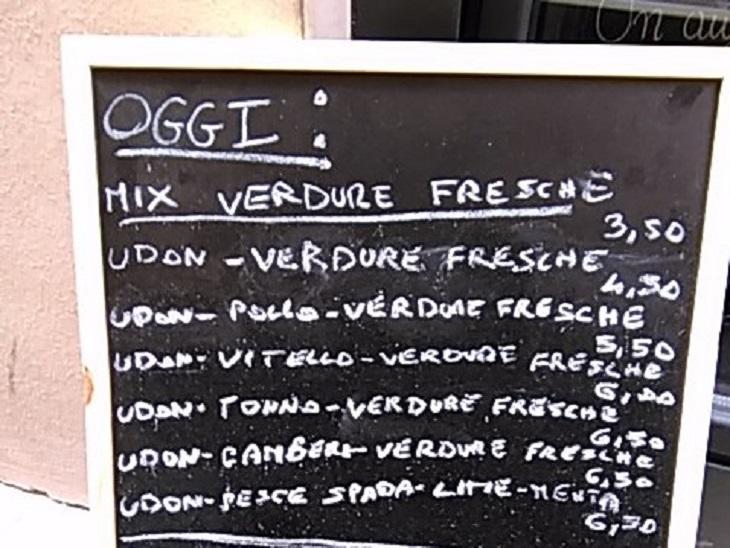 Un au
OGGI:
MIX VERDURE FRESCHE
3,50
UDON - VERDURE FRESCHE
4,50
UDON - POLLO - VERDURE FRESCHE
5,50
UDON - VITELLO - VERDURE FRESCHE
6,00
UDON - TONNO - VERDURE FRESCHE
6,50
UDON - GAMBERI - VERDURE FRESCHE
6,50
UDON - PESCE SPADA - LIME - MENTA
6,50